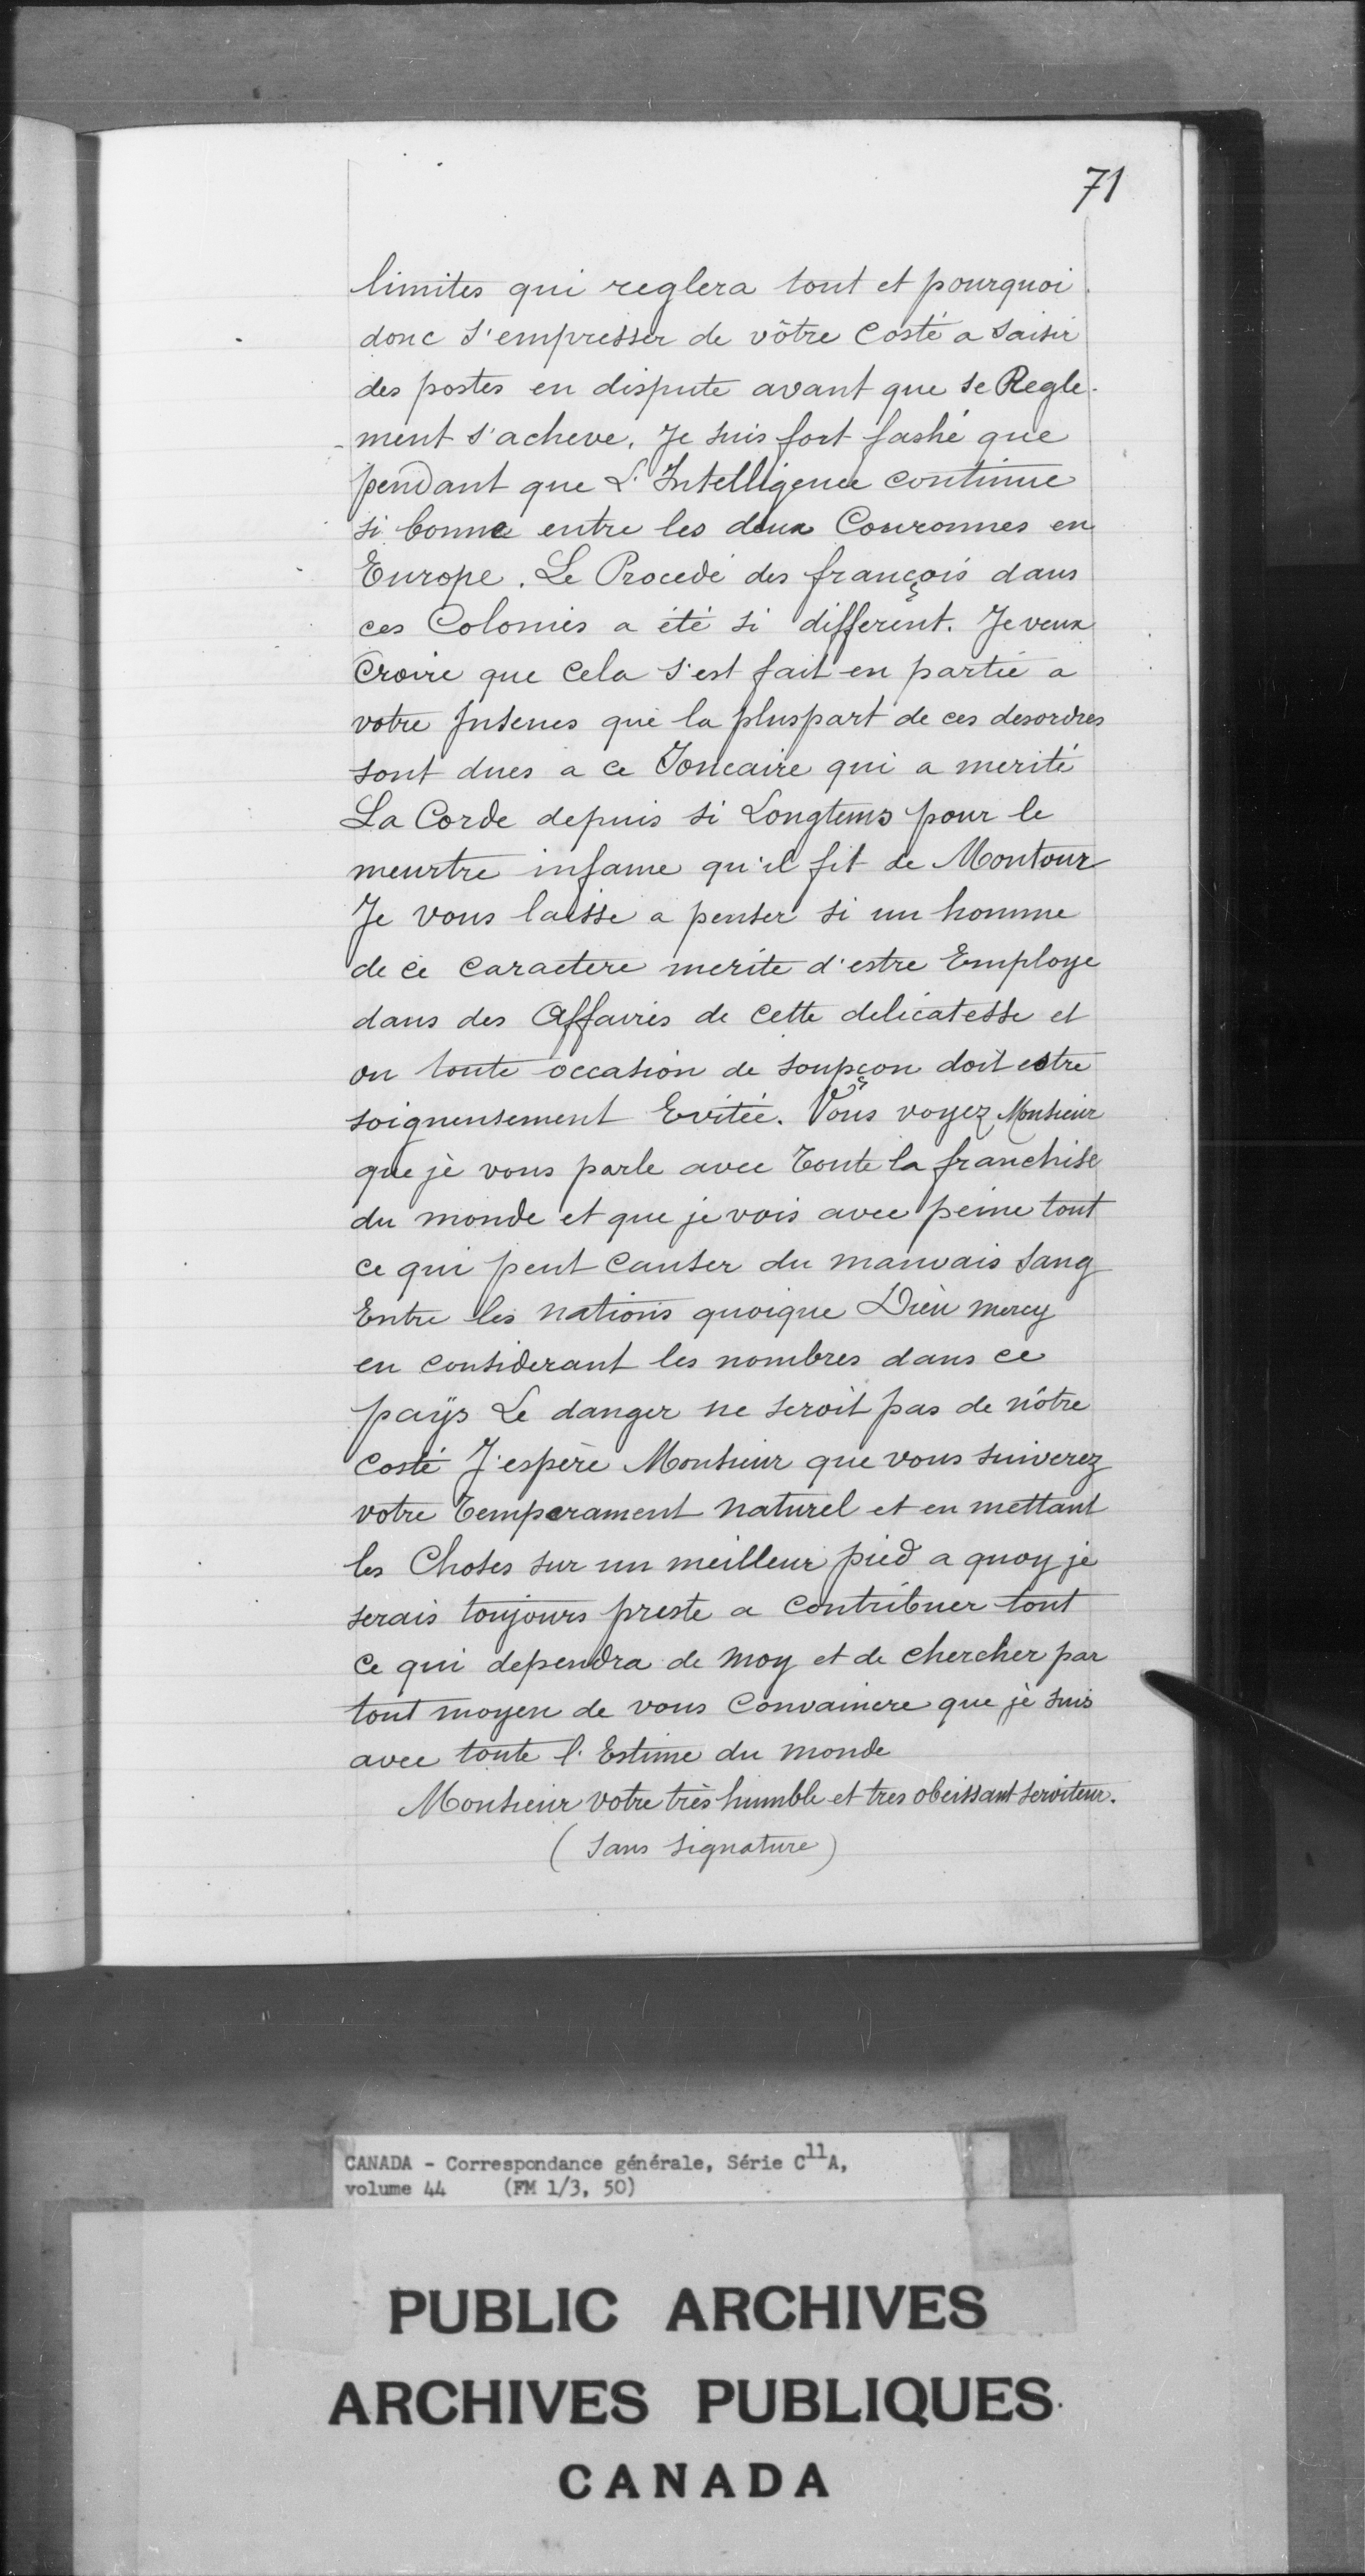 71
limites qui reglera tout et pourquoi
donc s'empresser de vôtre Costé a Saisir
des postes en dispute avant que se Regle-
-ment s'acheve. Je suis fort fashé que
pendant que L'Intelligence continue
si bonne entre les deux Couronnes en
Europe. Le Procedé des françois dans
ces Colonies a été si different. Je veux
Croire que Cela s'est fait en partie a
votre Insenes que la pluspart de ces desordres
sont dues a ce Joncaire qui a merité
La Corde depuis si Longtems pour le
meurtre infame qu'il fit de Montour
Je vous laisse a penser si un homme
de ce Caractere merite d'estre Employe
dans des Affaires de Cette delicatesse et
ou toute occasion de soupçon doit estre
soigneusement Evitée. Vous voyez Monsieur
que je vous parle avec Toute la franchise
du monde et que je vois avec peine tout
ce qui peut Causer du mauvais Sang
Entre les nations quoique Dieu mercy
en considerant les nombres dans ce
païjs Le danger ne seroit pas de nôtre
Costé J'espère Monsieur que vous suiverez
votre Temperament naturel et en mettant
les Choses sur un meilleur pied a quoy je
serais toujours preste a Contribuer tout
Ce qui dependra de moy et de chercher par
tout moyen de vous Convaincre que je suis
avec toute l'Estime du monde
Monsieur votre très humble et tres obeissant serviteur.
(Sans Signature)
CANADA - Correspondance générale, Série C11A,
volume 44 (FM 1/3, 50)
PUBLIC ARCHIVES
ARCHIVES PUBLIQUES
CANADA